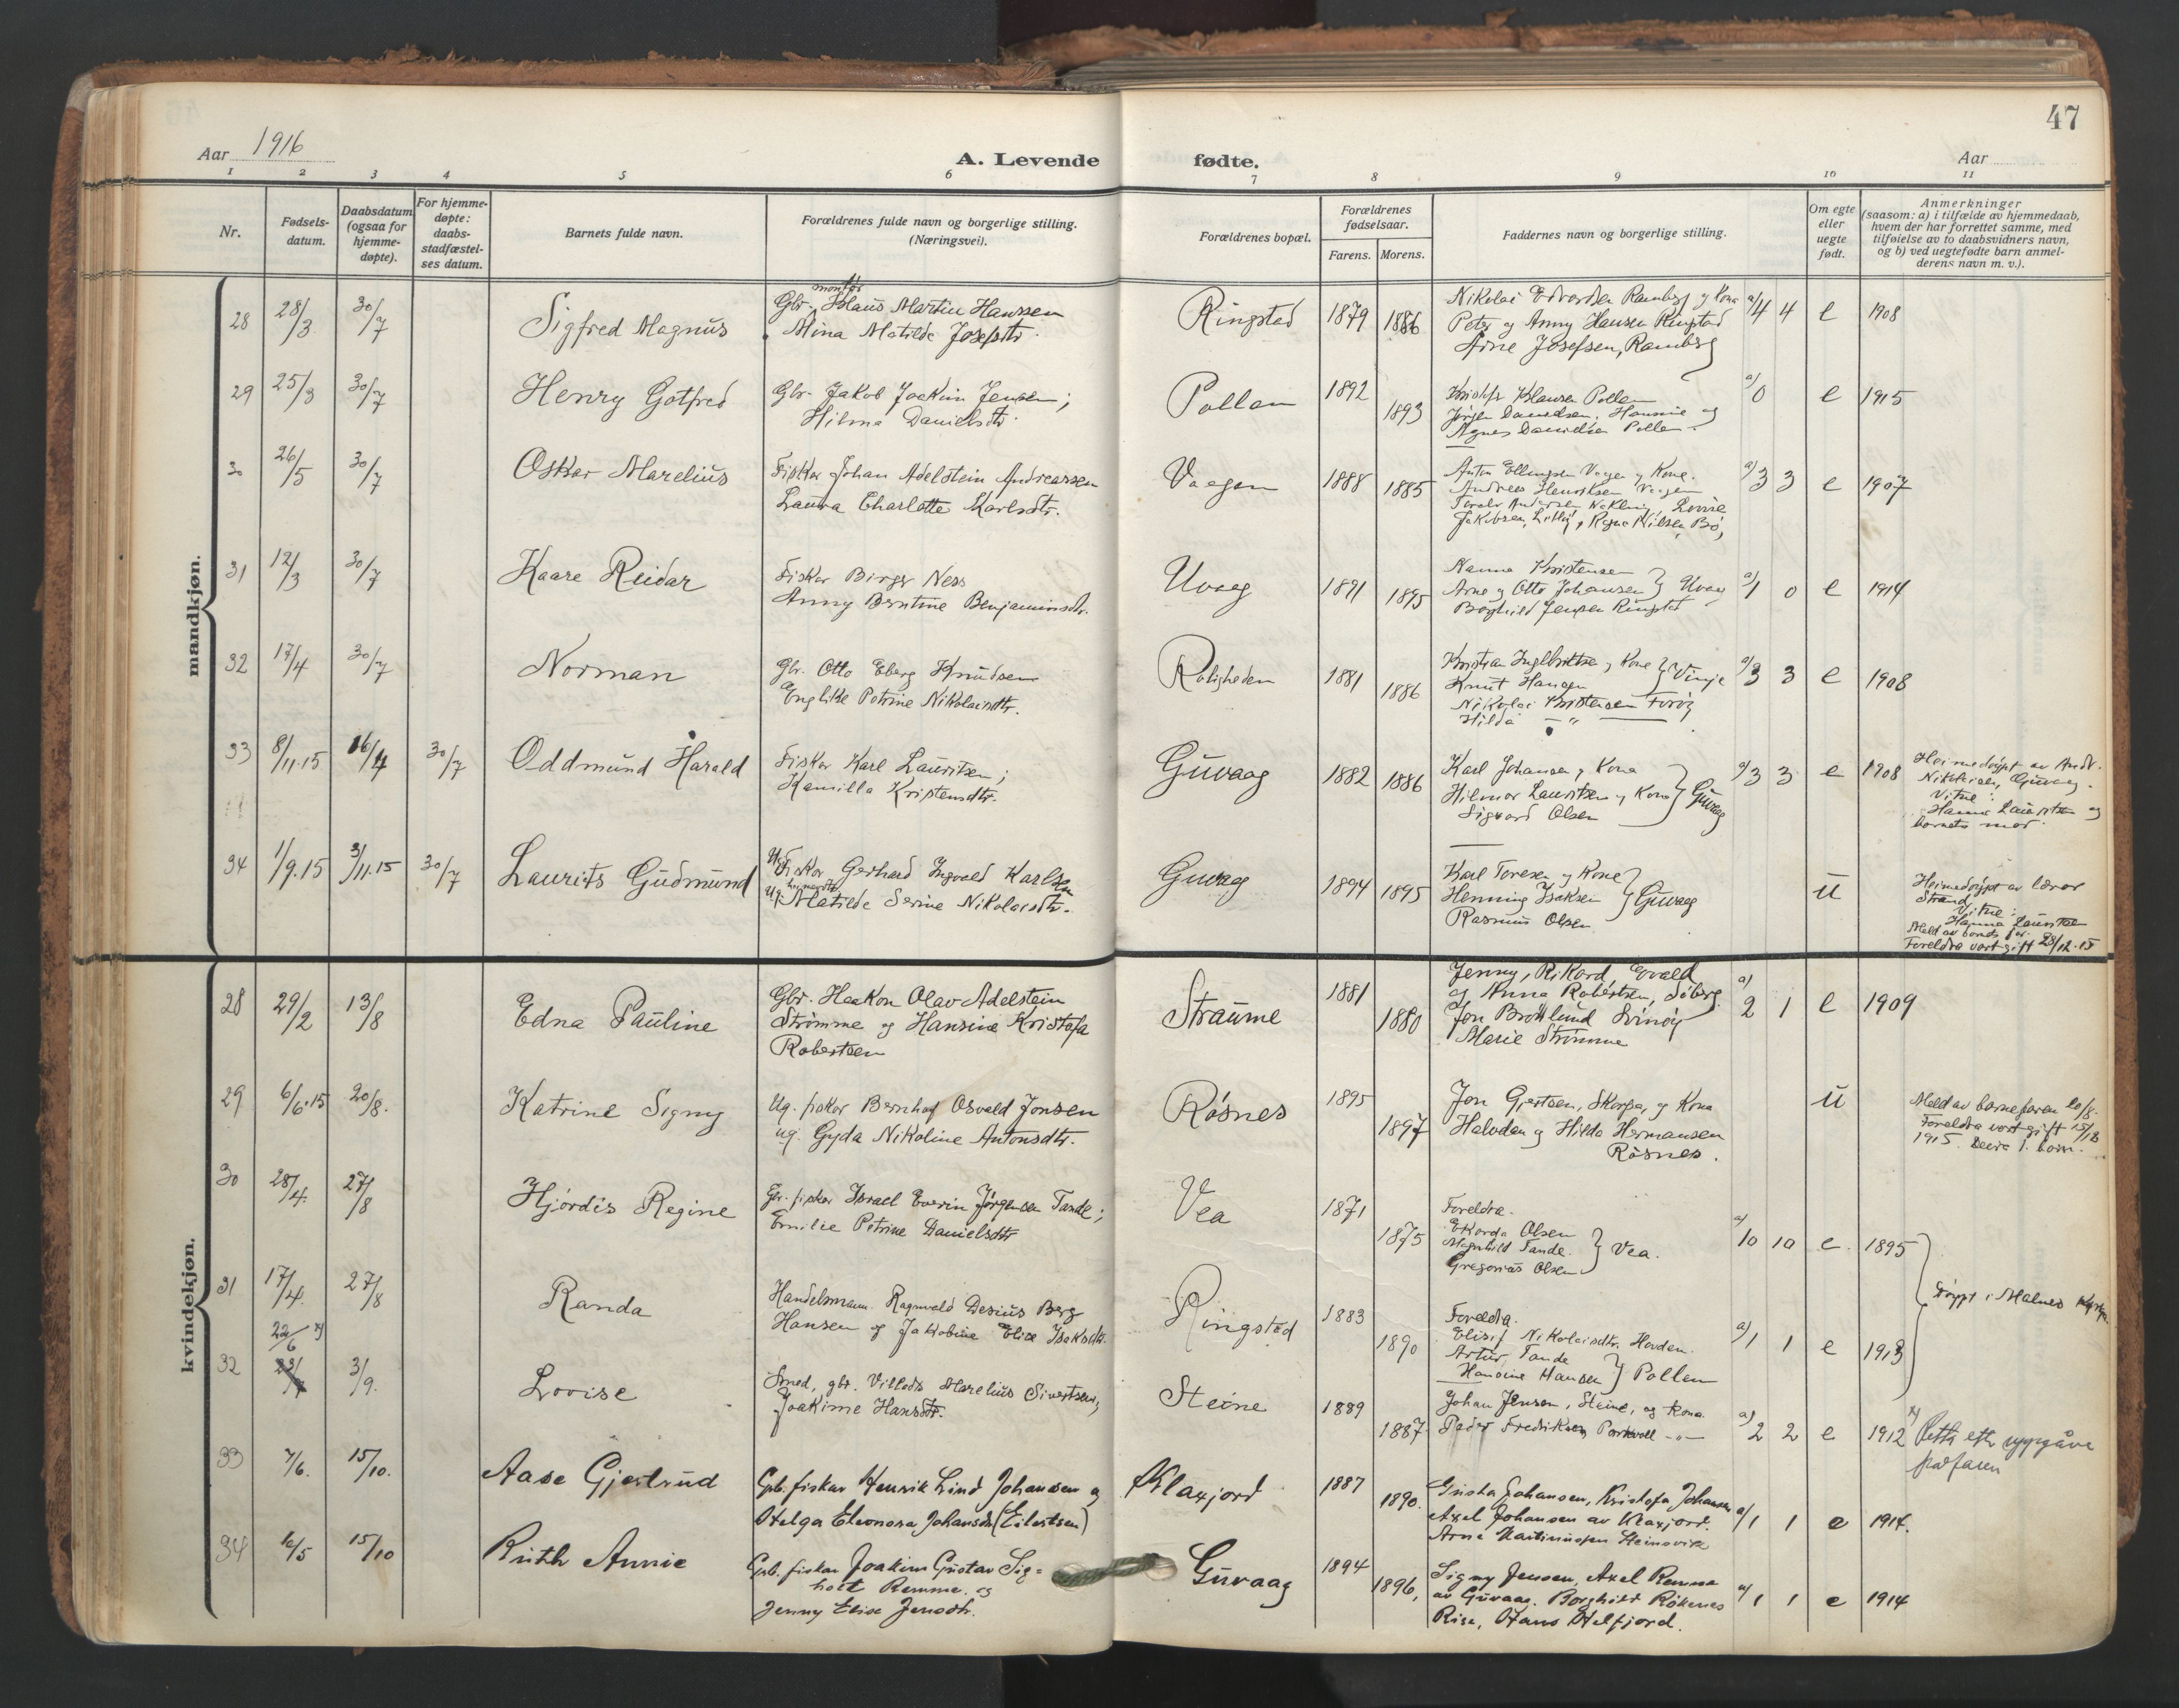 47
Aar 1916
A. Levende fødte.
Aar
1 2 3 4 5 6 7 8 9 10 11
Nr.
Fødsels-
datum.
Daabsdatum
(ogsaa for
hjemme-
døpte).
For hjemme-
døpte:
daabs-
stadfæstel-
ses datum.
Barnets fulde navn.
Forældrenes fulde navn og borgerlige stilling.
(Næringsvei).
Forældrenes bopæl.
Forældrenes
fødselsaar.
Farens. Morens.
Faddernes navn og borgerlige stilling.
Om egte
eller
uegte
født.
Anmerkninger
(saasom: a) i tilfælde av hjemmedaab,
hvem der har forrettet samme, med
tilføielse av to daabsvidners navn,
og b) ved uegtefødte barn anmel-
derens navn m. v.).
mandkjøn.
28 28/3 30/7 Sigfred Magnus
montør
Gbr. Klaus Martin Hanssen
Mina Matilde Josefsdtr.
Ringstad 1879 1886
Nikolai Edvardsen Ramberg og kona
Peter og Anny Hansen Ringstad
Arne Josefsen, Ramberg
a/4 4 e 1908
29 25/3 30/7 Henry Gotfred
Gbr. Jakob Joakim Jensen;
Hilma Danielsdtr.
Pollen 1892 1893
Kristofer Klausen Pollen
Jørgen Danielsen, Hansine og
Agnes Danielsen Pollen.
a/0 e 1915
30 26/5 30/7 Oskar Marelius
Fisker Johan Adelstein Andreassen
Laura Charlotte Karlsdtr.
Vaagen 1888 1885
Anton Ellingsen Vaagen og Kone.
Andreas Henriksen Vaagen
Jakobsen, Regna Nilsen, Bø,
a/3 3 e 1907
31 12/3 30/7 Kaare Reidar
Fisker Birger Ness
Anny Berntine Benjaminsdtr.
Uvaag 1891 1895
Nanna Kristensen
Arne og Otto Johansen } Uvaag
Borghild Jensen Ringstad
a/1 0 e 1914
32 17/4 30/7 Norman
Gbr. Otto Eberg Knudsen
og Englike Petrine Nikolaisdtr.
Roligheden 1881 1886
Kristian Ingebrittsen og Kone } Vinje
Knut Hansen
Nikolai Kristensen Forøy
Hilda — " —
a/3 3 e 1908
33 8/11.15 16/4 30/7 Oddmund Harald
Fisker Karl Lauritsen;
Kamilla Kristensdtr.
Guvaag 1882 1886
Karl Johansen og Kona
Hilmar Lauritsen og Kona } Guvaag
Sigvard Olsen
a/3 3 e 1908
Heimedøypt av Andr.
Nikolaisen, Guvaag.
Vitne:
Hanna Lauritsen og
barnets mor.
34 1/9.15 3/11.15 30/7 Laurits Gudmund
Ug. Fisker Gerhard Ingvald Karlsen
Ug. Matilde Serine Nikolaisdtr.
Guvaag 1894 1895
Karl Toresen og Kone
Henning Isaksen } Guvaag
Rasmus Olsen
u
Heimedøypt av lærar
Strand,
Vitne:
Hanna Lauritsen
Meld av barnets far.
Foreldra vart gift 28/12.15
kvindekjøn.
28 29/2 13/8 Edna Pauline
Gbr. Haakon Olav Adelstein
Strømme og Hansine Kristofa
Robertsen
Straume 1881 1880
Jenny, Rikard, Evald
og Anna Robertsen, Søberg
Jon Brottlund Svinøy
Marie Strømme
a) 2 1 e 1909
29 6/6.15 20/8. Katrine Signy
Ug. fisker Bernhof Osvald Jonsen
ug. Gyda Nikoline Antonsdtr.
Røsnes 1895 1897
Jon Gjertsen, Skorpa, og Kona
Halvdan og Hilda Hermansen
Røsnes.
u
Meld av barnefaren 20/8.
Foreldra vart gift 15/12
1915. Deira 1. barn.
30 28/4. 27/8 Hjørdis Regine
Gbr. fisker Israel Everin Jørgensen Tande;
Emilie Petrine Danielsdtr
Vea 1871 1875
Foreldra.
Ekarda Olsen
Magnhild Tande. } Vea.
Gregorius Olsen
a/10 10 e. 1895
31 17/4. 27/8 Randa
Handelsmann Ragnvald Desius Berg
Hansen og Jakobine Elise Isaksdtr.
Ringstad 1883 1890
Foreldra.
Elisif Nikolaisdtr. Hovden.
Artur Tande
Hansine Hansen } Pollen
a/1 1 e 1913
Døypt i Malnes Kyrkje.
32 22/6 x) 3/9. Lovise
Smed, gbr. Villads Marelius Sivertsen;
Joakime Hansdtr.
Steine 1889 1887
Johan Jensen, Steine, og Kona
Peder Fredriksen Parkvoll — " —
a) 2 2 e 1912
x) Retta etter uppgåve
frå faren
33 7/6. 15/10. Aase Gjertrud
Gpb. fisker Henrik Lind Johansen og
Helga Eleonora Johansdtr (Eilertsen)
Klaxjord 1887 1890.
Gusta Johansen, Kristofa Johansen
Axel Johansen av Klaxjord.
Arne Martinussen Steinsvik
a/1 1 e 1914.
34 15/10 Ruth Annie
Gpb. fisker Joakim Gustav Sig=
holt Remme. og
Jenny Elise Jensdtr.
Guvaag 1894 1896,
Signy Jensen, Axel Remme
av Guvaag. Borghild Røkenes
Rise, Hans Helfjord.
a/1 1 e 1914